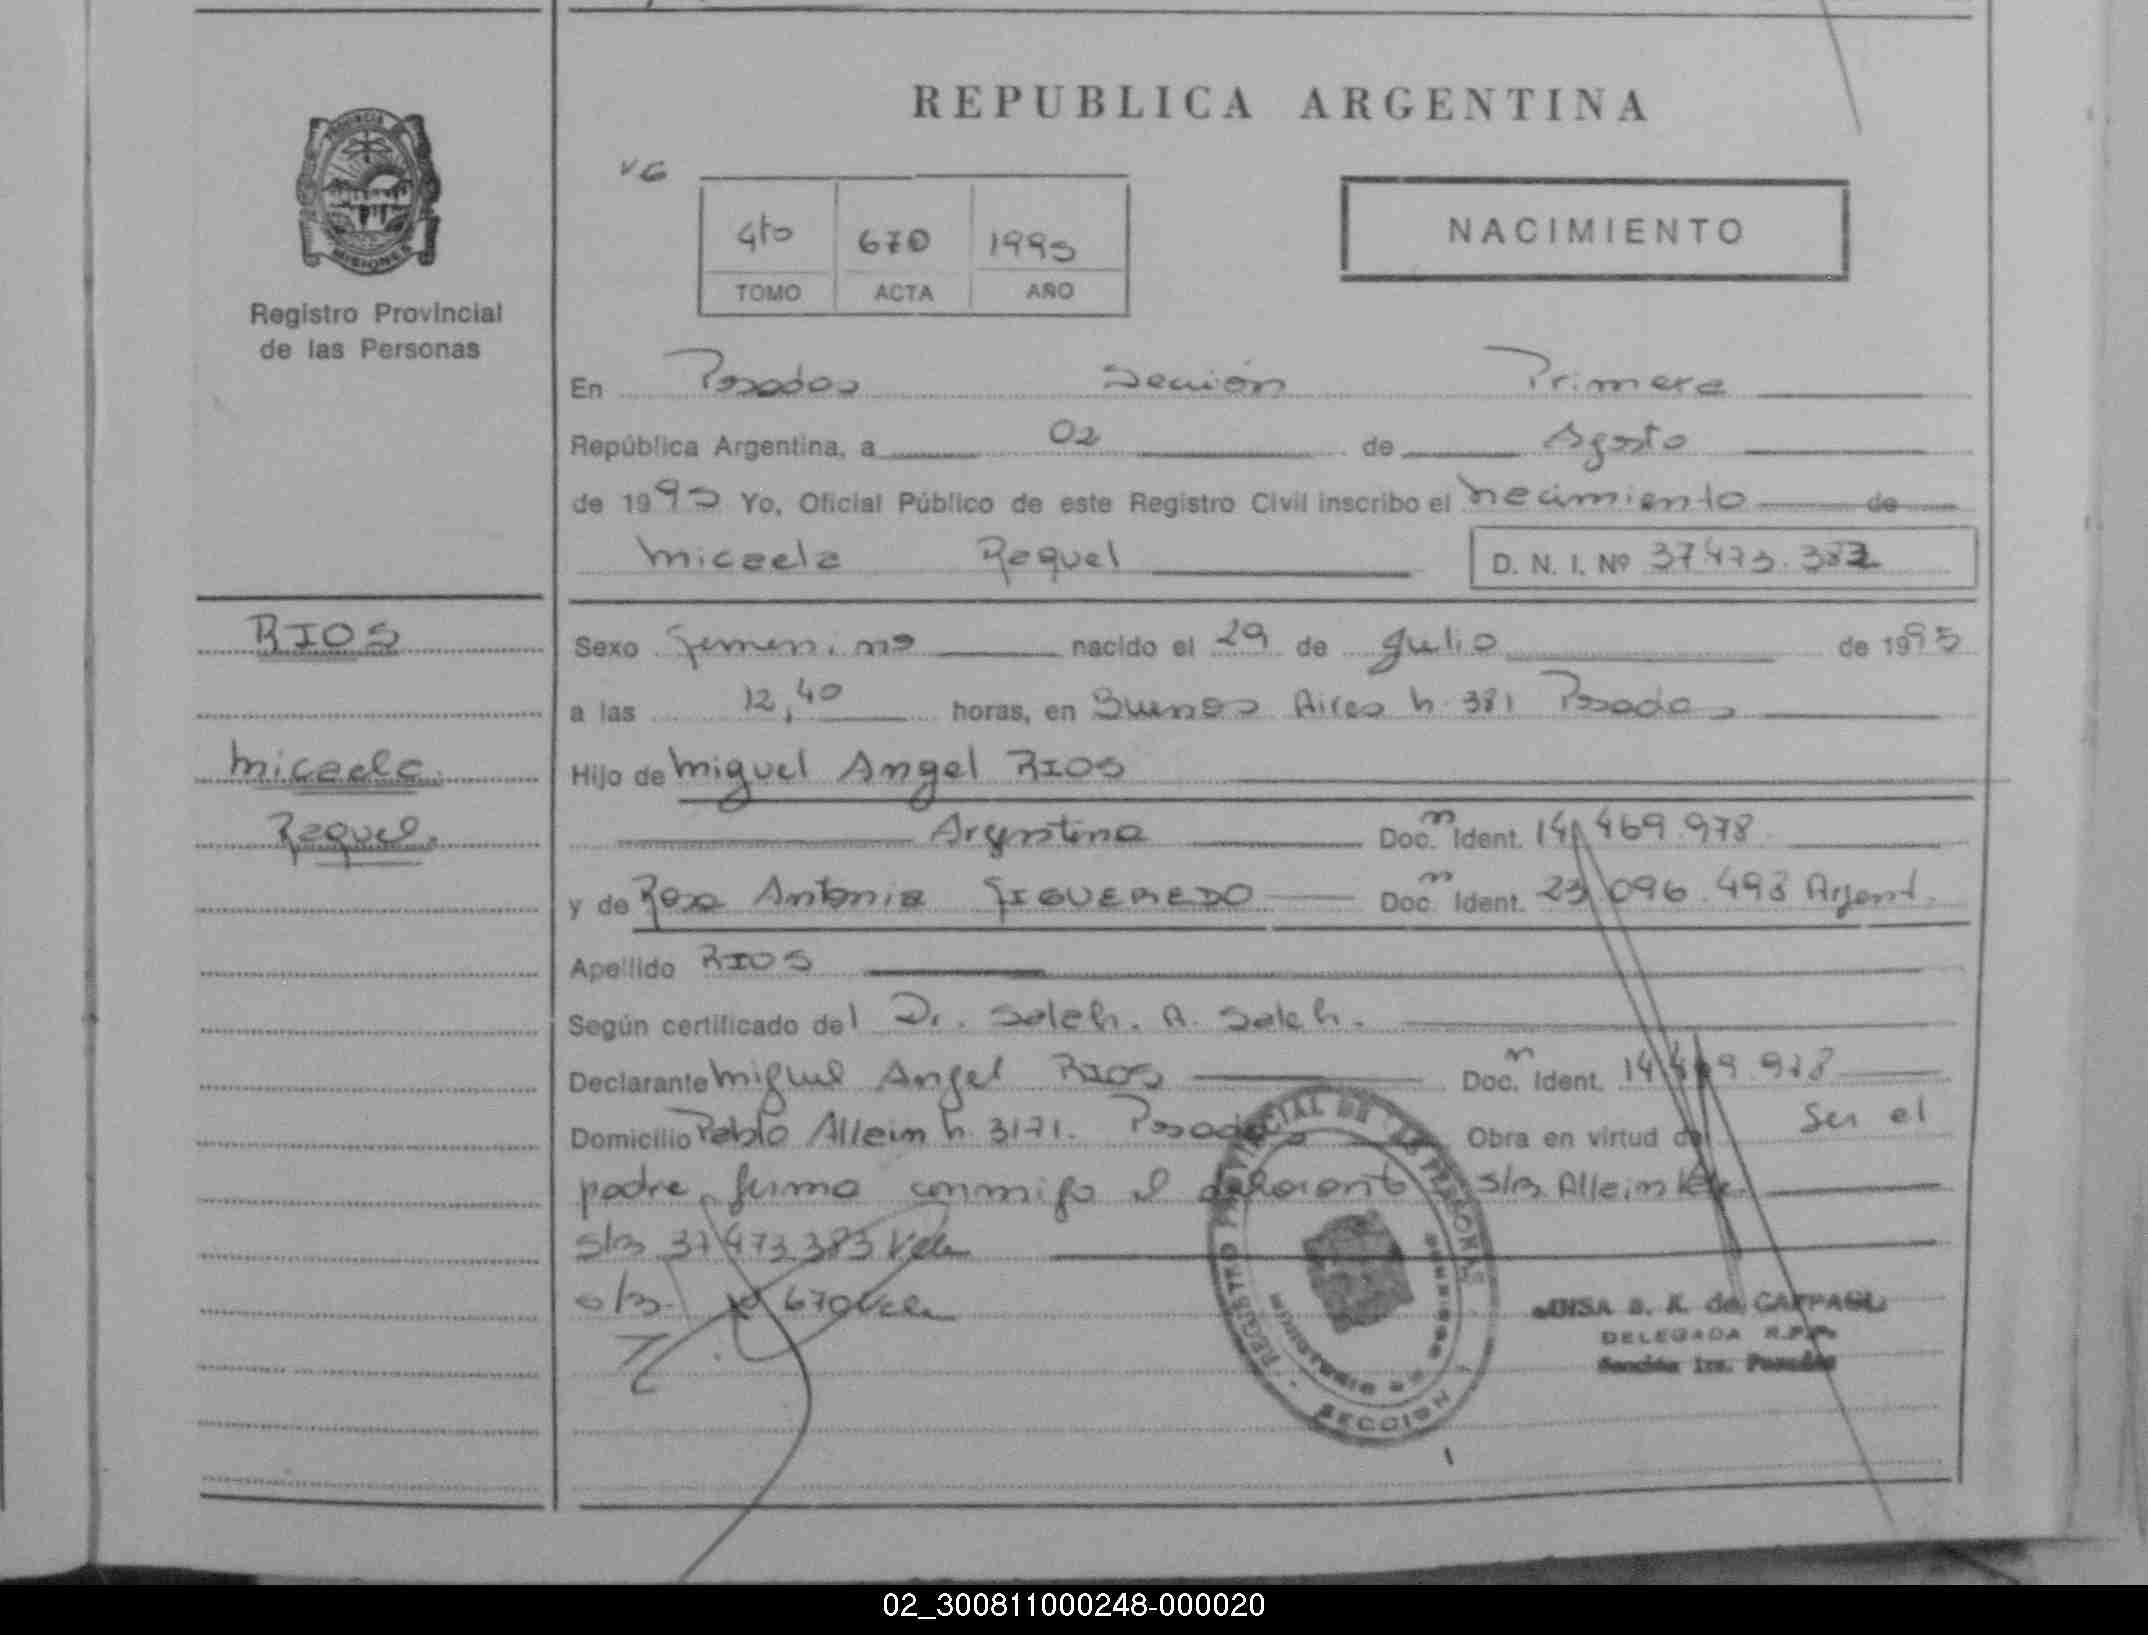 REPUBLICA ARGENTINA
PROVINCIA
MISIONES
Registro Provincial
de las Personas
4to 670 1995
TOMO ACTA AÑO
NACIMIENTO
En Posadas Sección Primera
República Argentina, a 02 de Agosto
de 1995 Yo, Oficial Público de este Registro Civil inscribo el nacimiento de
Micaela Raquel D. N. I. Nº 37473.383
RIOS
Sexo Femenino nacido el 29 de Julio de 1995
a las 12,40 horas, en Buenos Aires n. 381 Posadas
Micaela
Hijo de Miguel Angel RIOS
Raquel.
Argentina Doc. Ident. 14.469.978
y de Rosa Antonia FIGUEREDO Doc. Ident. 23.096.493 Argent.
Apellido RIOS
Según certificado del Dr. Saleh. A. Saleh.
Declarante Miguel Angel RIOS Doc. Ident. 14.469.978
Domicilio Pablo Allein n. 3171. Posadas Obra en virtud de Ser el
padre, firma conmigo el declarante s/R Allein Vale.
s/R 37.473.383 Vale
s/R 670 Vale
REGISTRO PROVINCIAL DE LAS PERSONAS
SECCION
1
DELEGADA R.P.P.
Sección 1ra. Posadas
02_300811000248-000020